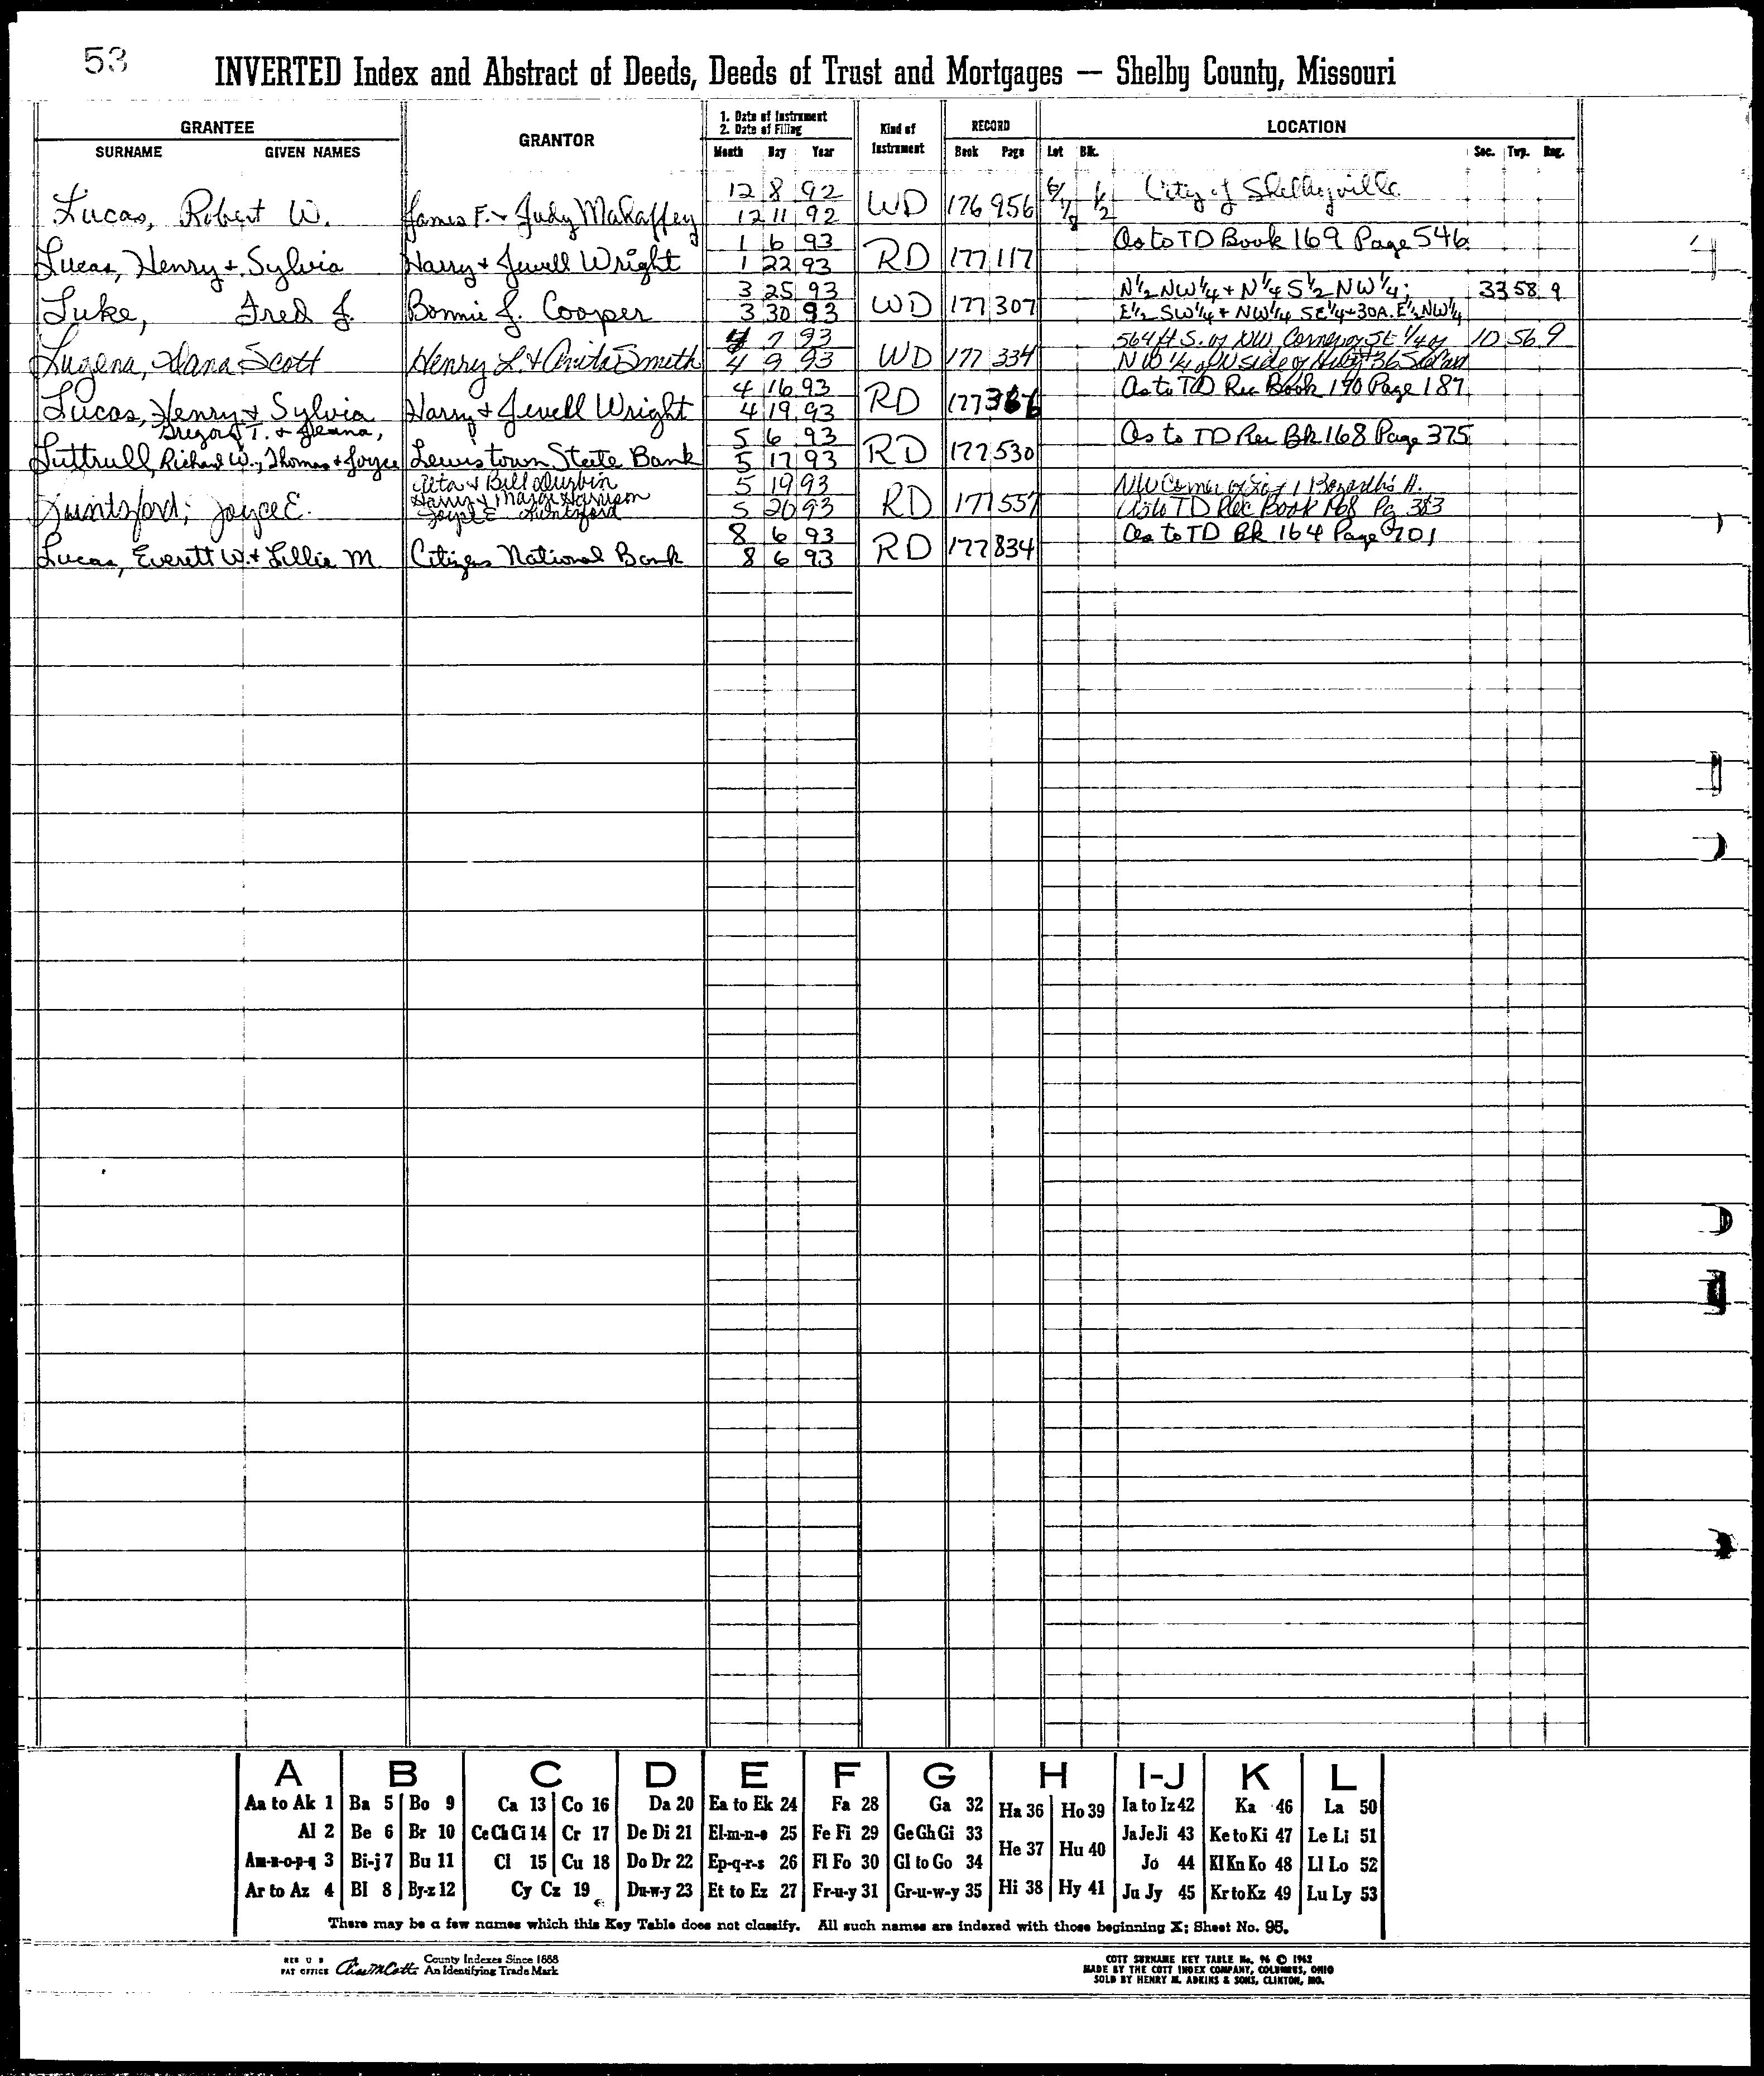 53
INVERTED Index and Abstract of Deeds, Deeds of Trust and Mortgages — Shelby County, Missouri
GRANTEE GRANTOR 1. Date of Instrument 2. Date of Filing Kind of Instrument RECORD LOCATION
SURNAME GIVEN NAMES Month Day Year Book Page Lot Blk. Sec. Twp. Rng.
12 8 92 City of Shelbyville
Lucas, Robert W. James F. + Judy Mahaffey 12 11 92 WD 176 956 1/2
1 6 93 As to TD Book 169 Page 546
Lucas, Henry + Sylvia Harry + Jewell Wright 1 22 93 RD 177 117
3 25 93 N 1/2 NW 1/4 + N 1/4 S 1/2 NW 1/4; 33 58 9
Luke, Fred J. Bonnie J. Cooper 3 30 93 WD 177 307 E 1/2 SW 1/4 + NW 1/4 SE 1/4 + 30A. E 1/2 NW 1/4
4 7 93 564 ft S. of NW Corner of SE 1/4 of 10 56 9
Lugena, Dana Scott Henry L. + Anita Smith 4 9 93 WD 177 334 NW 1/4 of N side of Hwy 36
4 16 93 As to TD Rec Book 170 Page 187
Lucas, Henry + Sylvia Harry + Jewell Wright 4 19 93 RD 177
Gregory T. + Jeanna, 5 6 93 As to TD Rec Bk 168 Page 375
Luttrull, Richard W., Thomas + Joyce Lewistown State Bank 5 17 93 RD 177 530
Alta + Bill Durbin 5 19 93 NW Corner of Lot 1
Harry + Harrison
Luntsford, Joyce E. Joyce E. Luntsford 5 20 93 RD 177 557 As to TD Rec Book 168 Pg 383
8 6 93 As to TD Bk 164 Page 701
Lucas, Everett W. + Lillie M. Citizens National Bank 8 6 93 RD 177 834
A B C D E F G H I-J K L
Aa to Ak 1 Ba 5 Bo 9 Ca 13 Co 16 Da 20 Ea to Ek 24 Fa 28 Ga 32 Ha 36 Ho 39 Ia to Iz 42 Ka 46 La 50
Al 2 Be 6 Br 10 Ce Ch Ci 14 Cr 17 De Di 21 El-m-n-o 25 Fe Fi 29 Ge Gh Gi 33 He 37 Hu 40 Ja Je Ji 43 Ke to Ki 47 Le Li 51
Am-n-o-p-q 3 Bi-j 7 Bu 11 Cl 15 Cu 18 Do Dr 22 Ep-q-r-s 26 Fl Fo 30 Gl to Go 34 Jo 44 Kl Kn Ko 48 Ll Lo 52
Ar to Az 4 Bl 8 By-z 12 Cy Cz 19 Du-w-y 23 Et to Ez 27 Fr-u-y 31 Gr-u-w-y 35 Hi 38 Hy 41 Ju Jy 45 Kr to Kz 49 Lu Ly 53
There may be a few names which this Key Table does not classify. All such names are indexed with those beginning X; Sheet No. 95.
REG U S PAT OFFICE County Indexes Since 1888 An Identifying Trade Mark
COTT SURNAME KEY TABLE No. 96 © 1962
MADE BY THE COTT INDEX COMPANY, COLUMBUS, OHIO
SOLD BY HENRY M. ADKINS & SONS, CLINTON, MO.